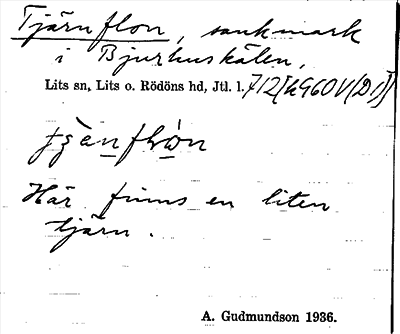 Tjärnflon, sankmark
i Bjurhuskälen,
Lits sn, Lits o. Rödöns hd, Jtl. l. 712[h960V(D1)]
Här finns en liten
tjärn.
A. Gudmundson 1936.